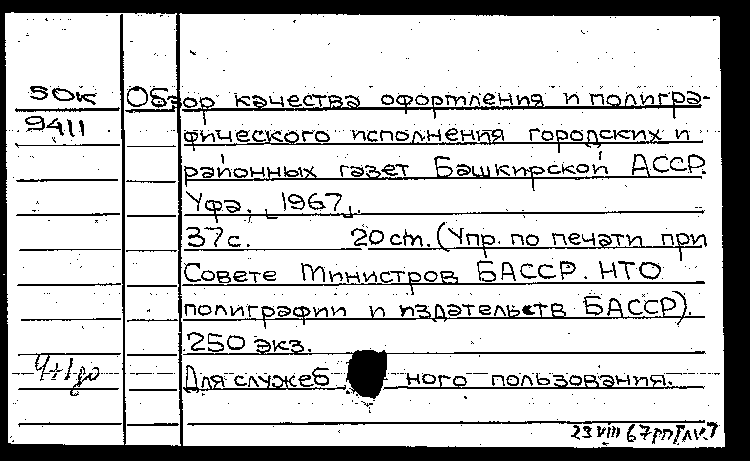 50к Обзор качества оформления и полигра-
9411 фического исполнения городских и
районных газет Башкирской АССР.
Уфа, [1967].
37с. 20cm. (Упр. по печати при
Совете Министров БАССР. НТО
полиграфии и издательств БАССР).
250 экз.
Для служебного пользования.
23 VIII 67